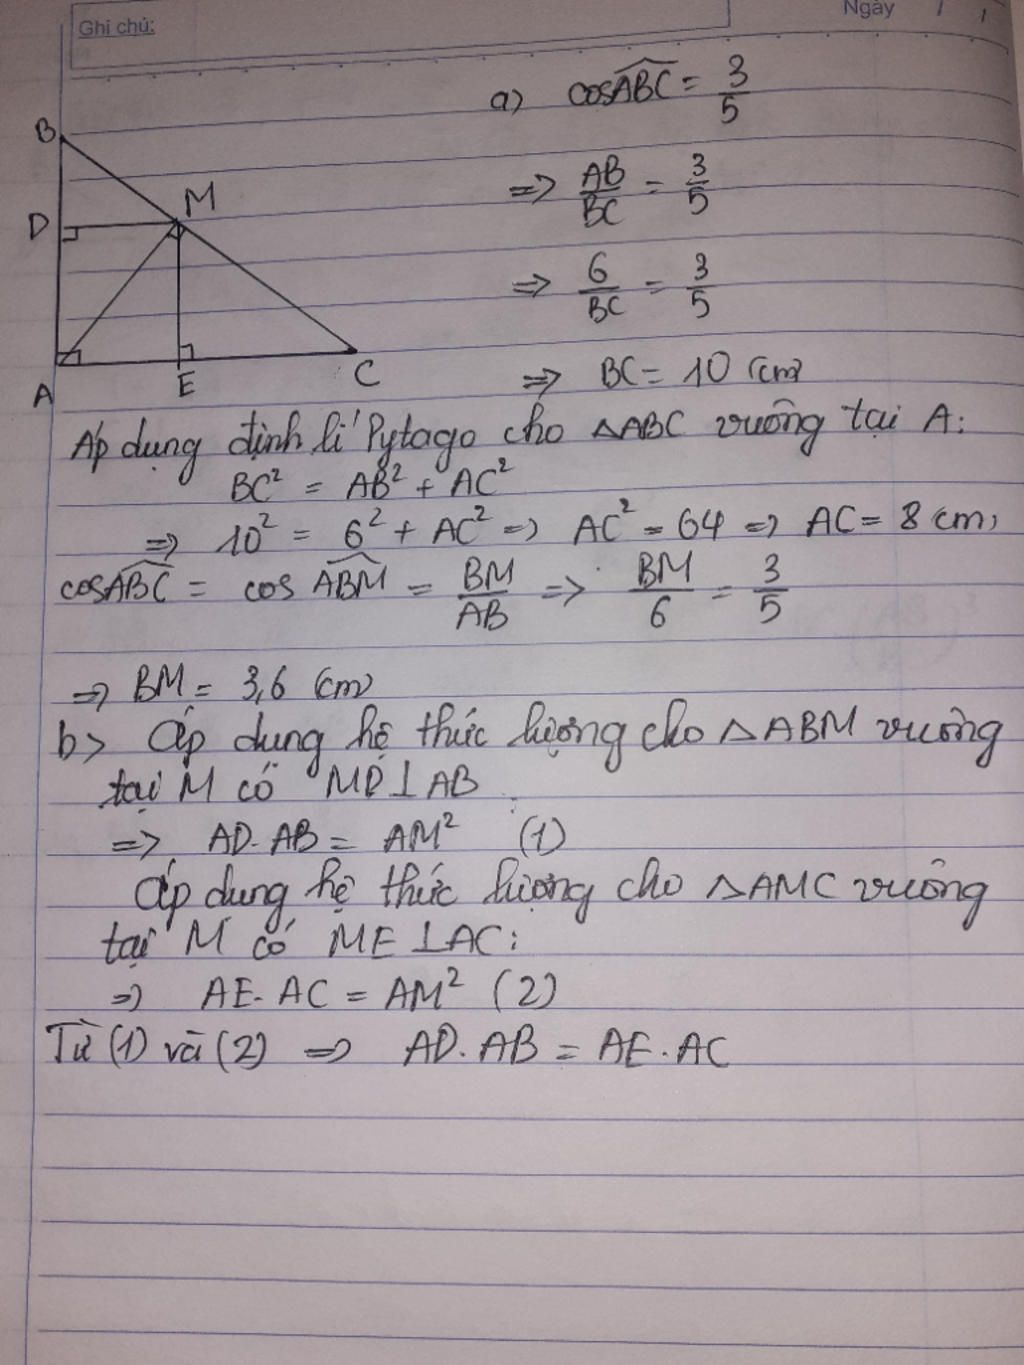 Ghi chú:
Ngày / /
a) cosABC = 3/5
B
M
=> AB/BC = 3/5
D
=> 6/BC = 3/5
A E C
=> BC = 10 (cm)
Áp dụng định lí Pytago cho △ABC vuông tại A:
BC² = AB² + AC²
=> 10² = 6² + AC² => AC² = 64 => AC = 8 cm)
cosABC = cos ABM = BM/AB => BM/6 = 3/5
=> BM = 3,6 (cm)
b) Áp dụng hệ thức lượng cho △ABM vuông
tại M có MD⊥AB
=> AD.AB = AM² (1)
Áp dụng hệ thức lượng cho △AMC vuông
tại M có ME⊥AC:
=> AE.AC = AM² (2)
Từ (1) và (2) => AD.AB = AE.AC